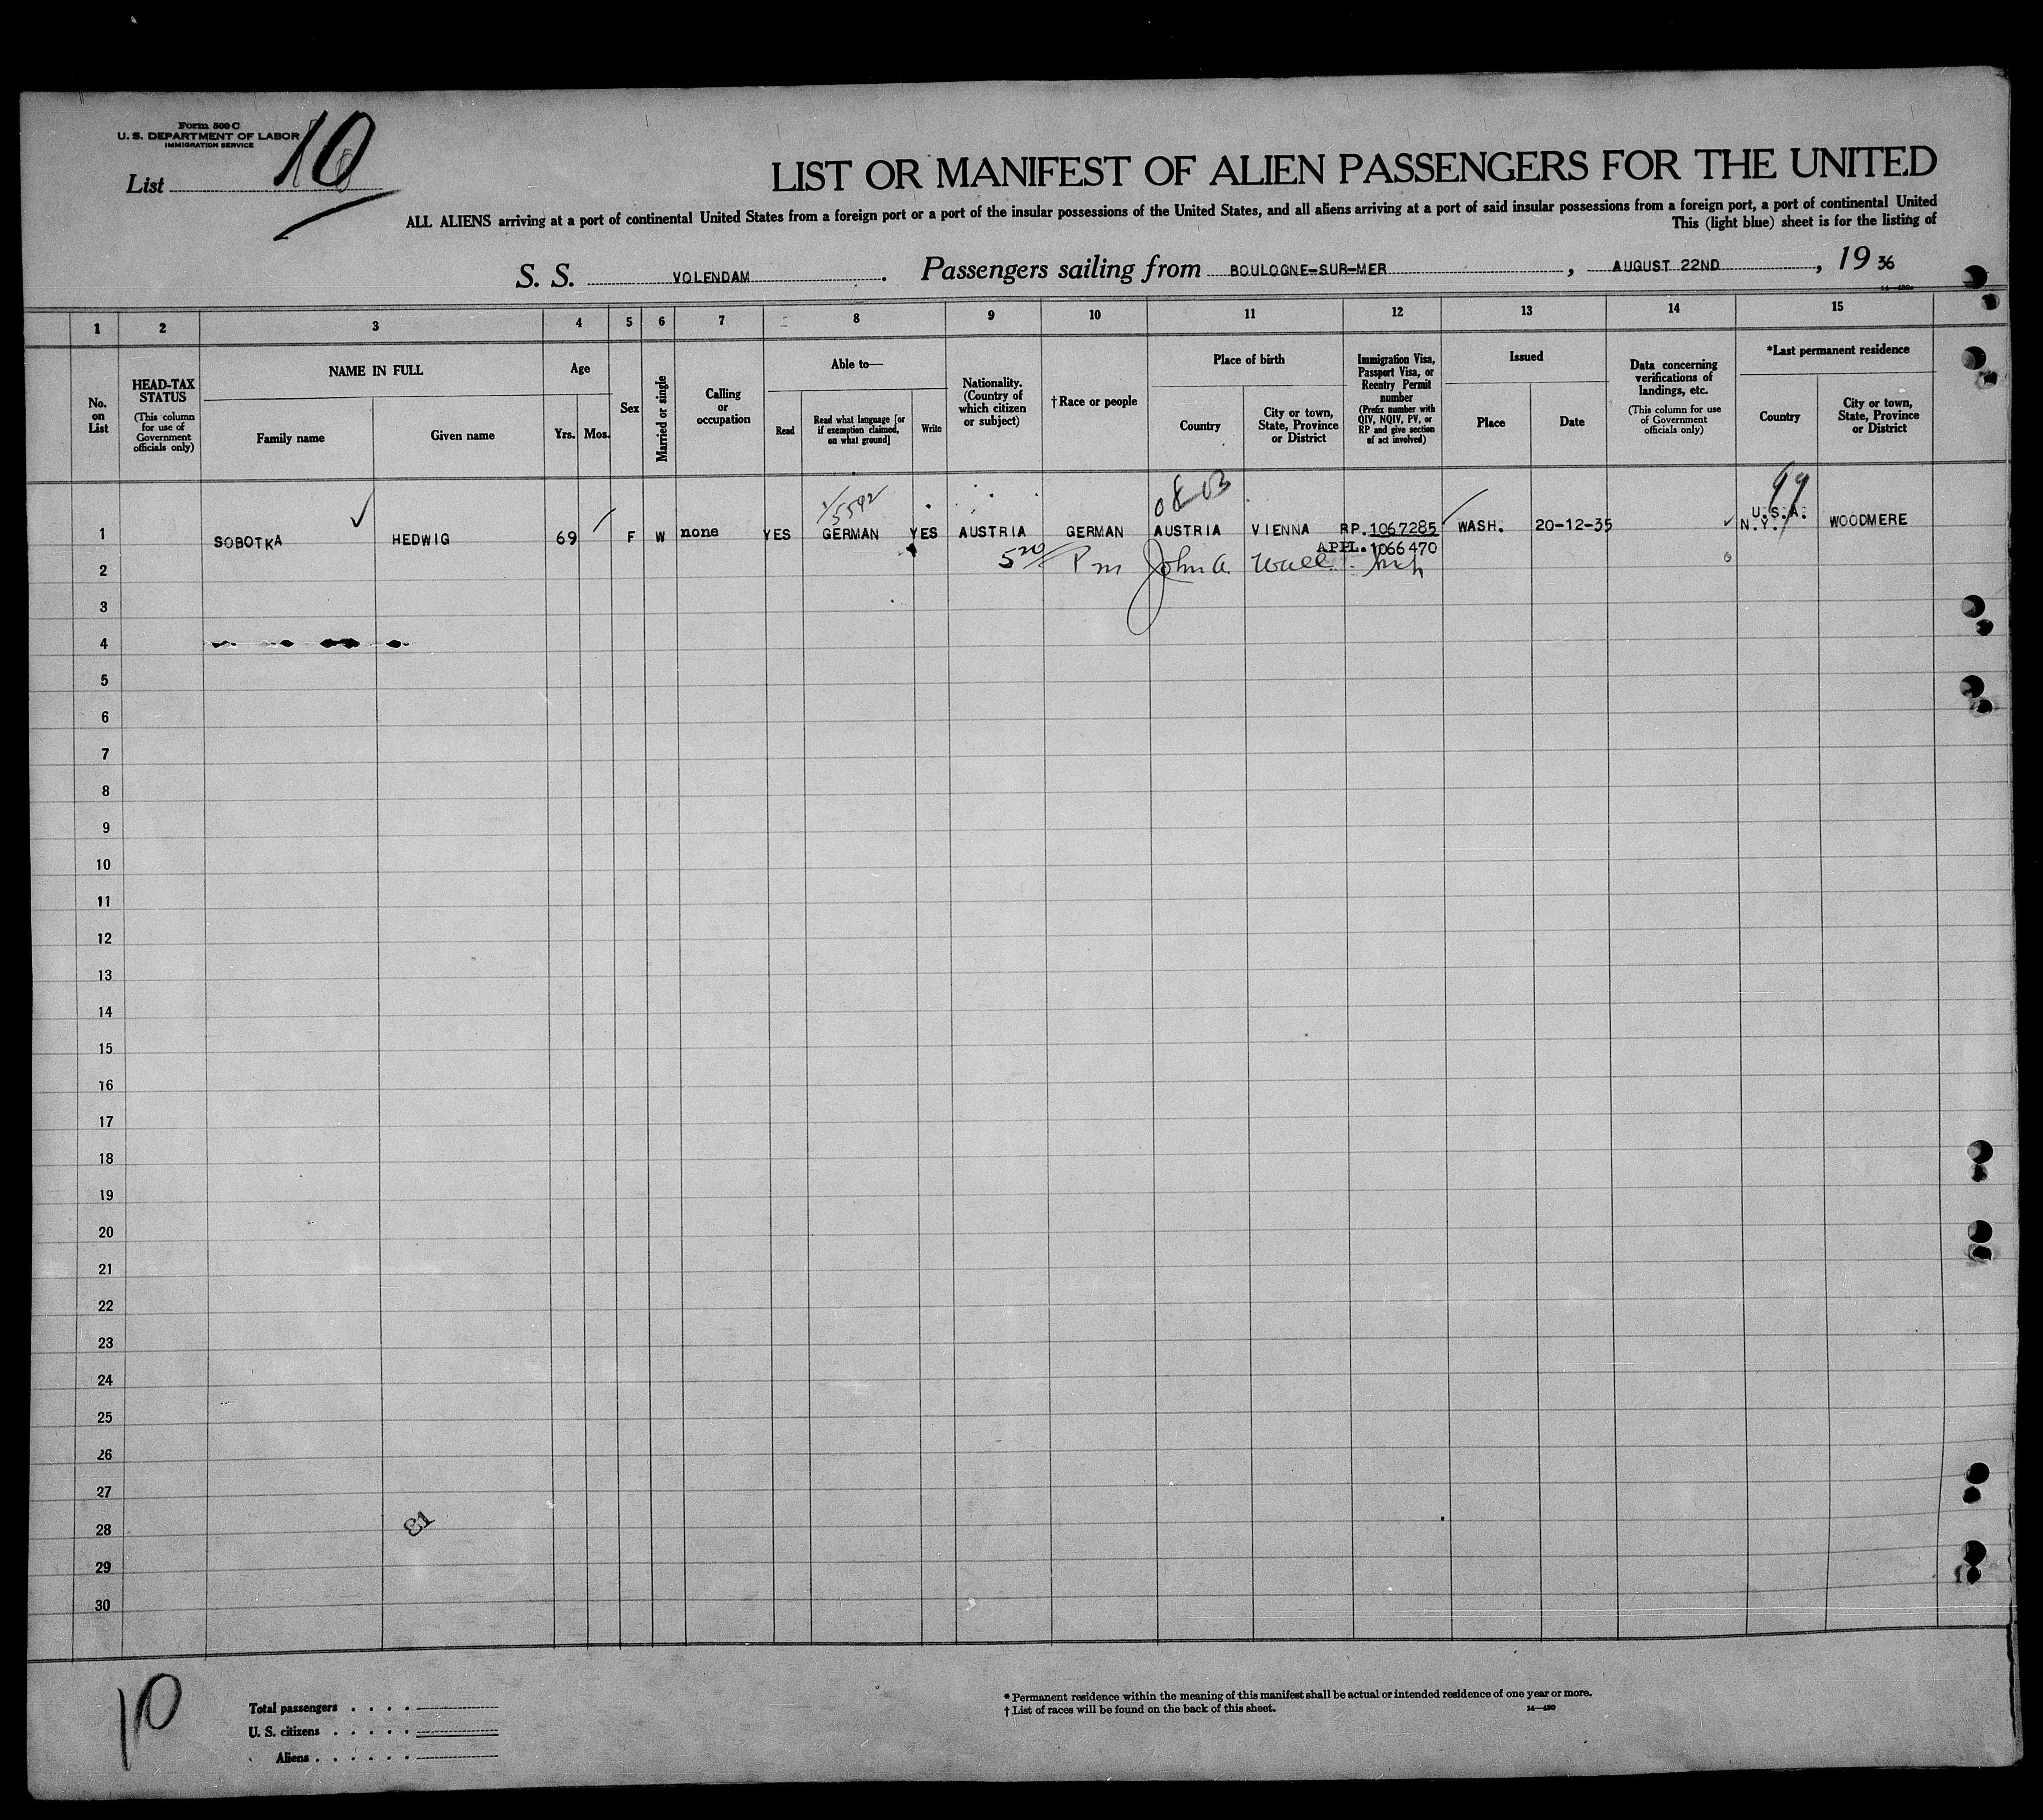 Form 500 C
U. S. DEPARTMENT OF LABOR
IMMIGRATION SERVICE
List 10
LIST OR MANIFEST OF ALIEN PASSENGERS FOR THE UNITED
ALL ALIENS arriving at a port of continental United States from a foreign port or a port of the insular possessions of the United States, and all aliens arriving at a port of said insular possessions from a foreign port, a port of continental United
This (light blue) sheet is for the listing of
S. S. VOLENDAM. Passengers sailing from BOULOGNE-SUR-MER, AUGUST 22ND, 19 36
1 2 3 4 5 6 7 8 9 10 11 12 13 14 15
No. on List
HEAD-TAX STATUS
(This column for use of Government officials only)
NAME IN FULL
Family name
Given name
Age
Yrs. Mos.
Sex
Married or single
Calling or occupation
Able to—
Read
Read what language [or if exemption claimed, on what ground]
Write
Nationality. (Country of which citizen or subject)
†Race or people
Place of birth
Country
City or town, State, Province or District
Immigration Visa, Passport Visa, or Reentry Permit number
(Prefix number with QIV, NQIV, PV, or RP and give section of act involved)
Issued
Place
Date
Data concerning verifications of landings, etc.
(This column for use of Government officials only)
*Last permanent residence
Country
City or town, State, Province or District
99
1 SOBOTKA HEDWIG 69 F W none YES GERMAN YES AUSTRIA GERMAN AUSTRIA VIENNA RP. 1067285 WASH. 20-12-35 U.S.A. N.Y. WOODMERE
APPL. 1066470
2 John A.
3
4
5
6
7
8
9
10
11
12
13
14
15
16
17
18
19
20
21
22
23
24
25
26
27
28
29
30
10
Total passengers . . . .
U. S. citizens . . . . .
Aliens . . . . . .
* Permanent residence within the meaning of this manifest shall be actual or intended residence of one year or more.
† List of races will be found on the back of this sheet.
14—430